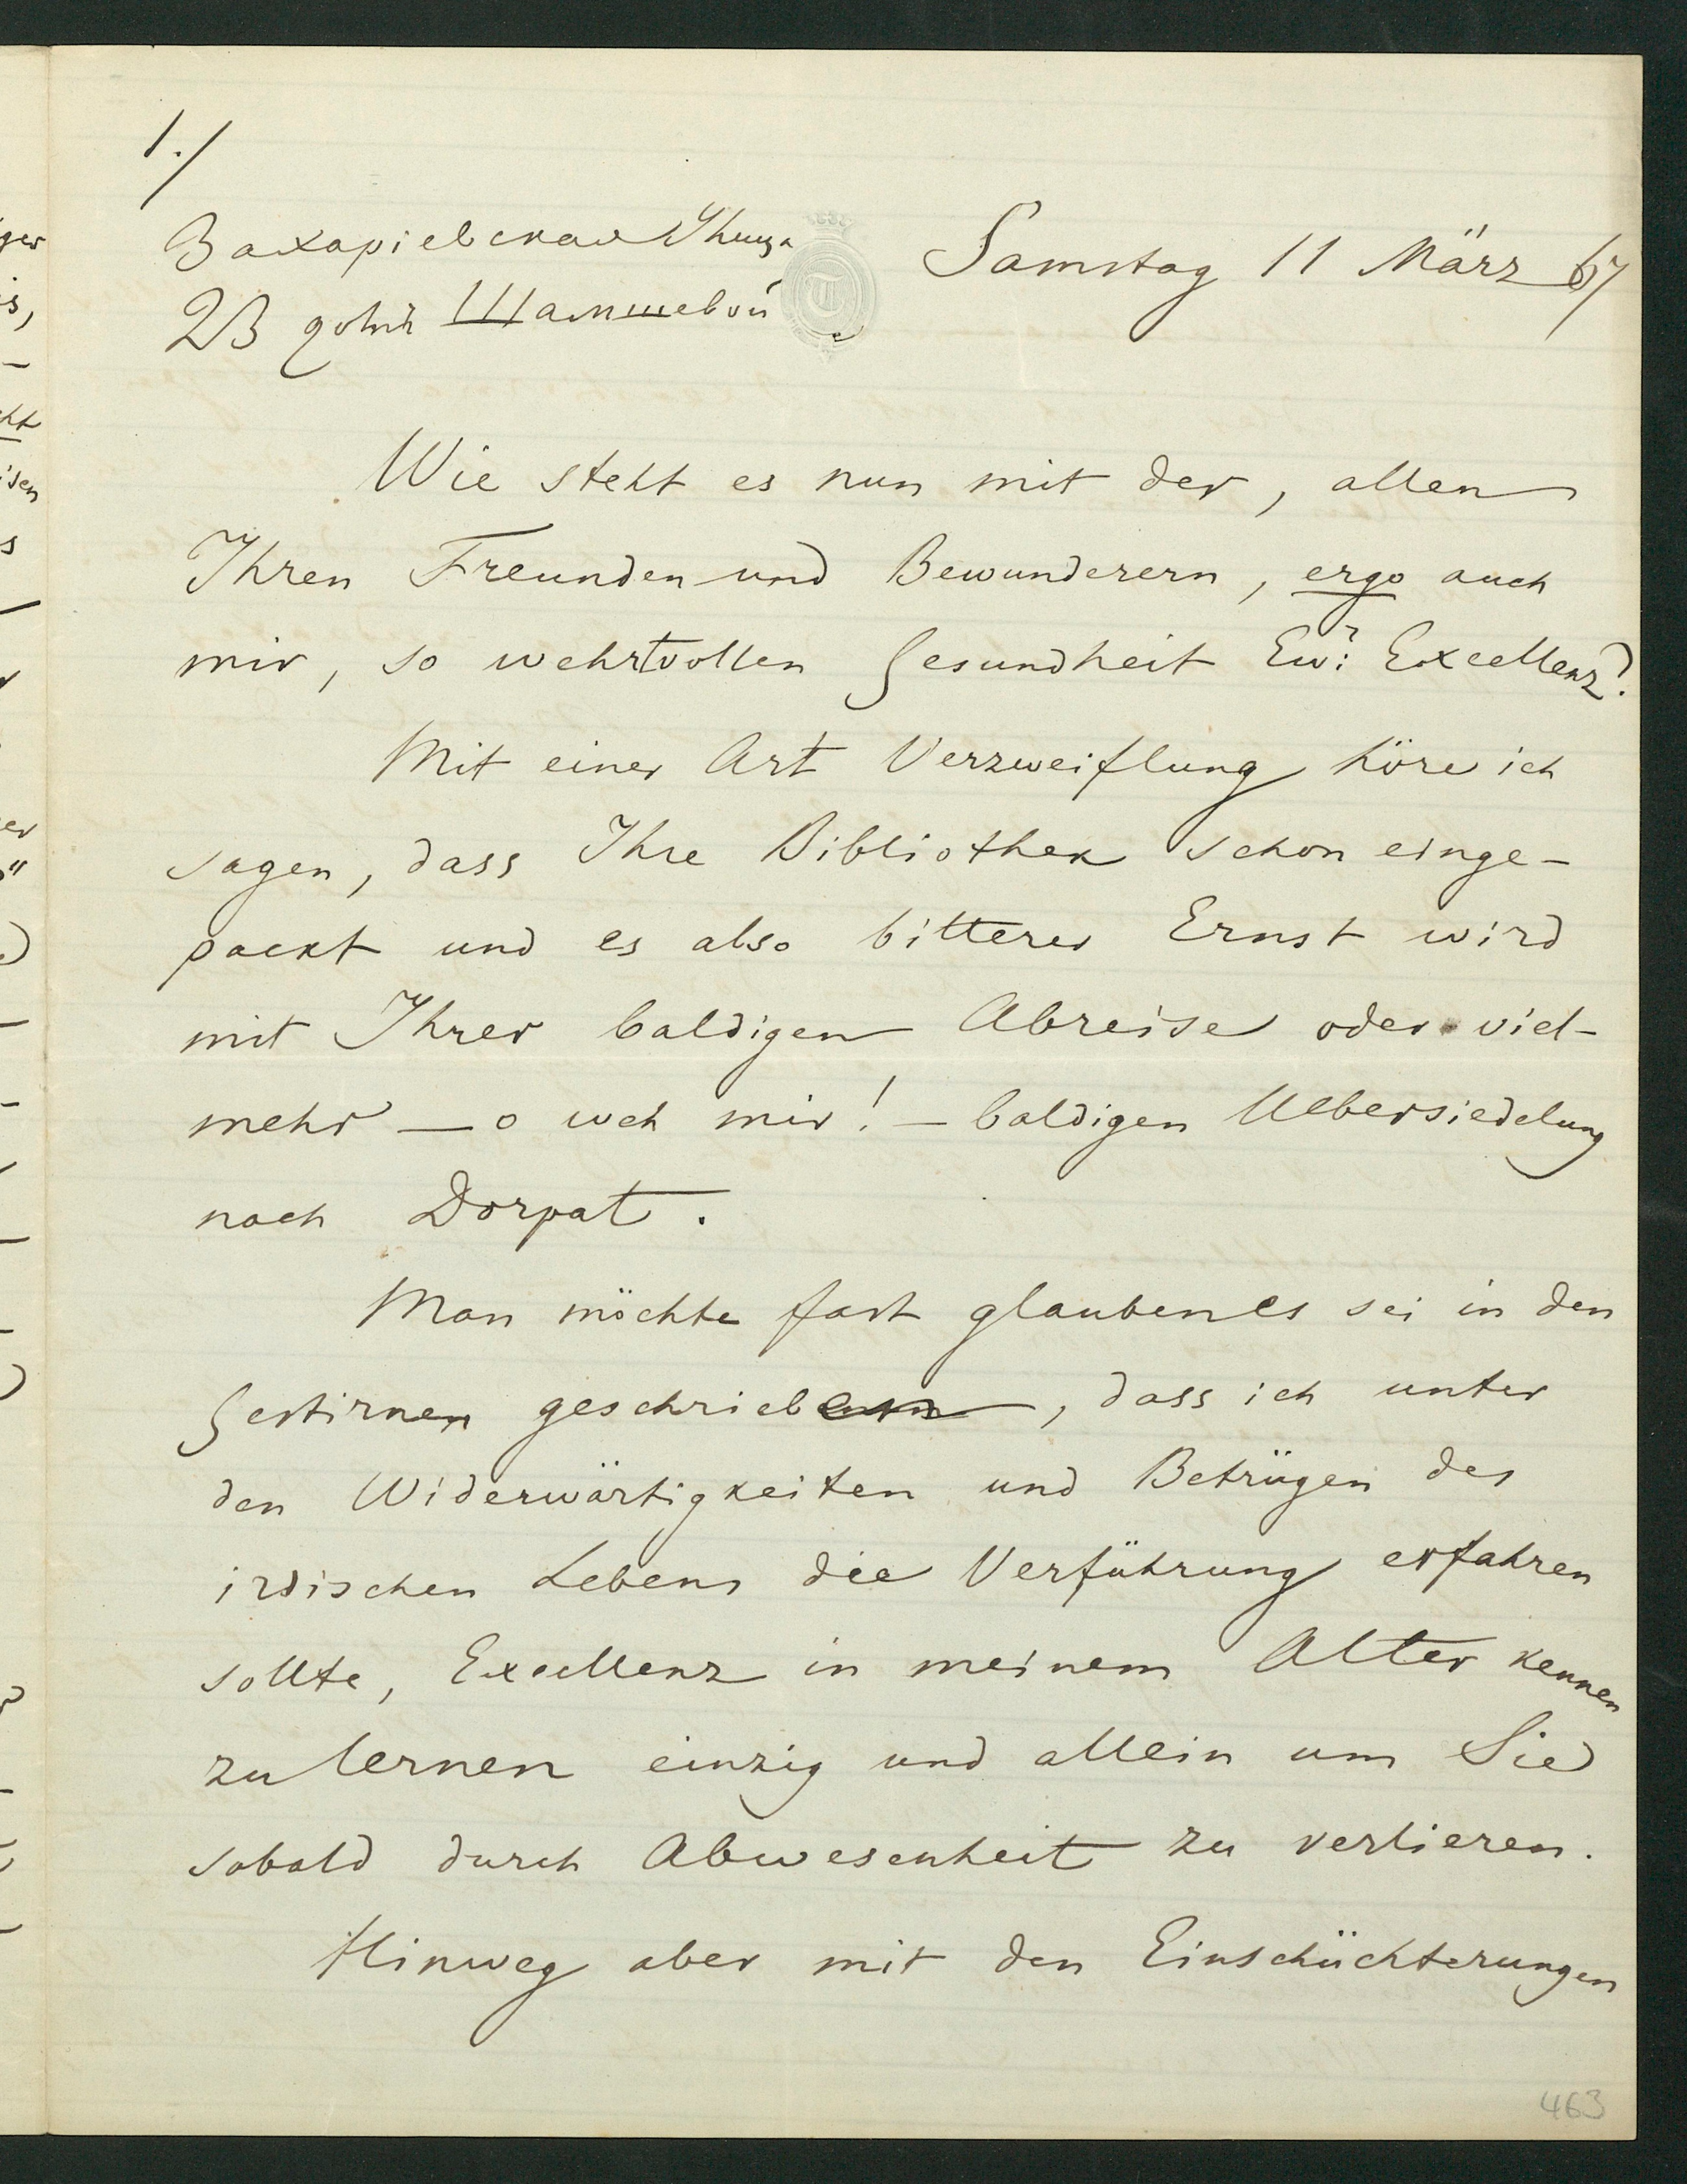 1./
Захаріевская Улица
23 домъ Шаммевой
Samstag 11 März 67
Wie steht es nun mit der, allen
Ihren Freunden und Bewunderern, ergo auch
mir, so wehrtvollen Gesundheit Ew: Excellenz?
Mit einer Art Verzweiflung höre ich
sagen, dass Ihre Bibliothek schon einge-
packt und es also bitterer Ernst wird
mit Ihrer baldigen Abreise oder viel-
mehr — o weh mir! — baldigen Uebersiedelung
nach Dorpat.
Man möchte fast glauben es sei in den
Gestirnen geschrieben, dass ich unter
den Widerwärtigkeiten und Betrügen des
irdischen Lebens die Verführung erfahren
sollte, Excellenz in meinem Alter kennen
zu lernen einzig und allein um Sie
sobald durch Abwesenheit zu verlieren.
Hinweg aber mit den Einschüchterungen
463